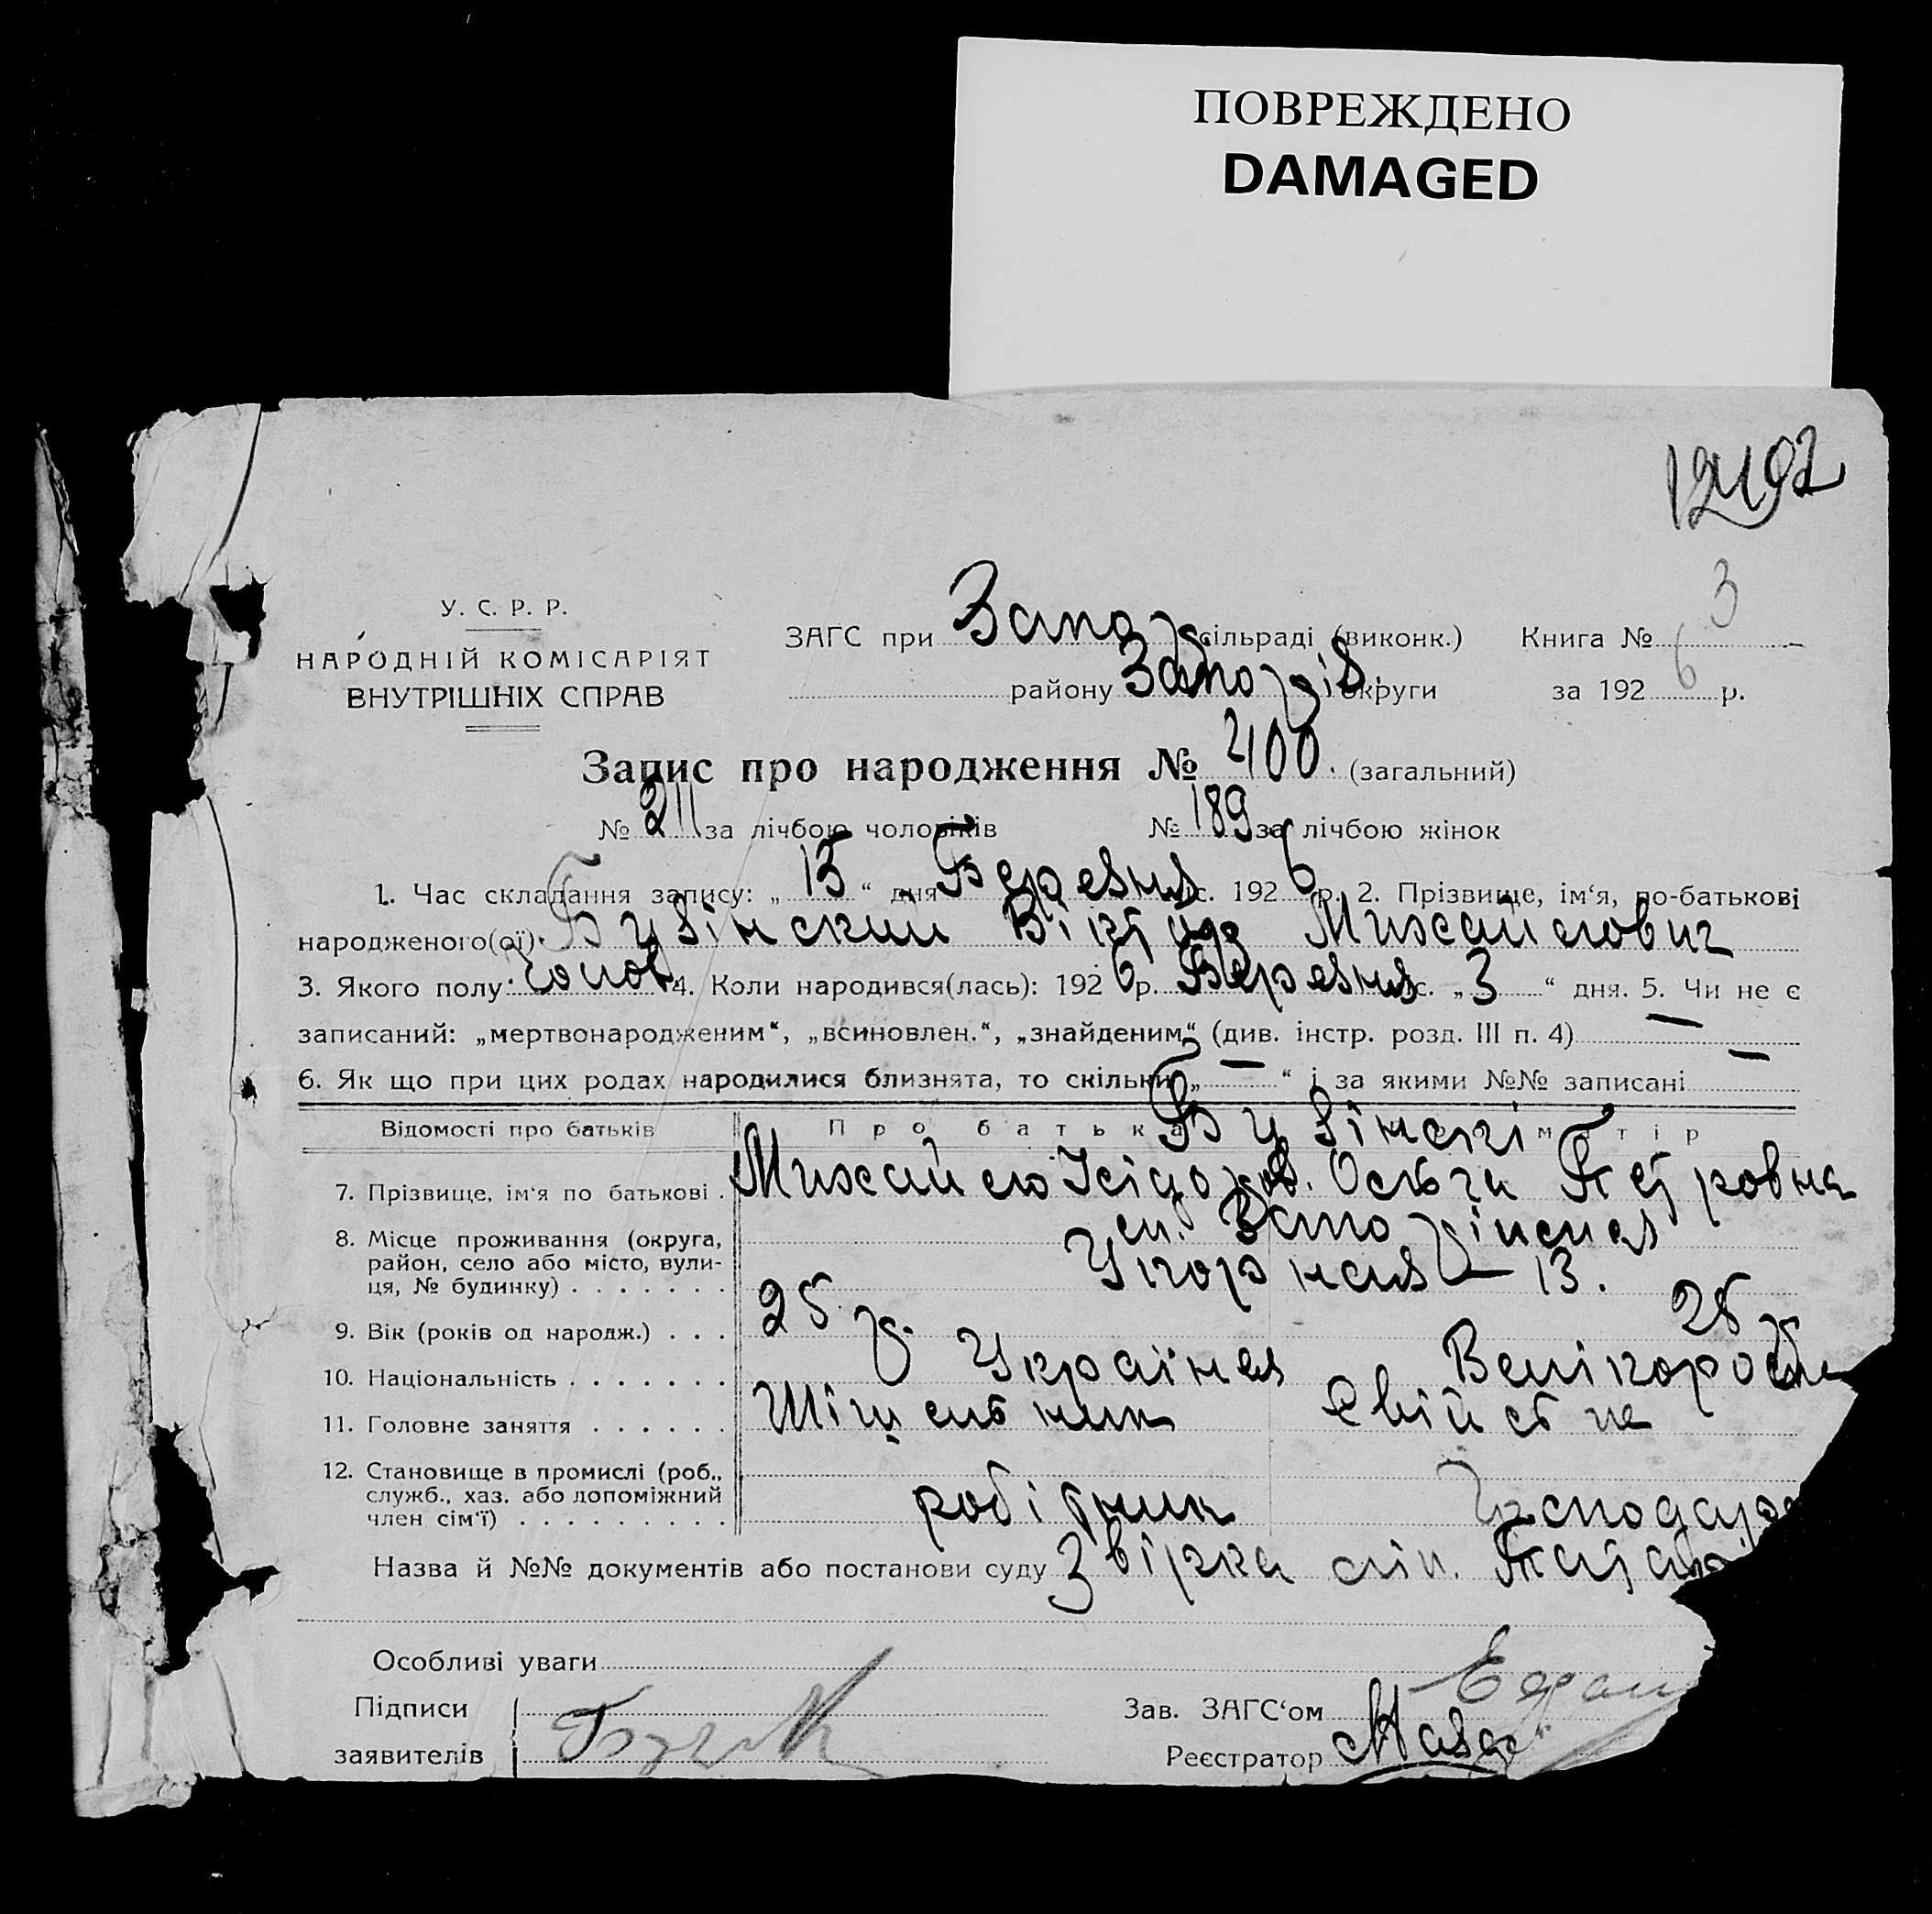 ПОВРЕЖДЕНО
DAMAGED
3
У. С. Р. Р.
НАРОДНІЙ КОМІСАРІЯТ
ВНУТРІШНІХ СПРАВ
ЗАГС при Запор сільраді (виконк.) Книга №
району Запоріз. округи за 192 6 р.
Запис про народження № 400. (загальний)
№ 211 за лічбою чоловіків № 189 за лічбою жінок
1. Час складання запису: „ 15 “ дня Березня с. 192 6 р. 2. Прізвище, ім‘я, по-батькові
народженого(ої) Бузінский Віктор Михайлович
3. Якого полу: Чолов 4. Коли народився(лась): 192 6 р. Березня с. „ 3 “ дня. 5. Чи не є
записаний: „мертвонародженим“, „всиновлен.“, „знайденим“ (див. інстр. розд. III п. 4) —
6. Як що при цих родах народилися близнята, то скільки „ — “ і за якими №№ записані —
Відомості про батьків Про батька Бузінскі матір
7. Прізвище, ім‘я по батькові . Михайло Ісідоров. Ольга Петровна
8. Місце проживання (округа,
район, село або місто, вули-
ця, № будинку) . . . . . . . — 13.
9. Вік (років од народж.) . . . 25 р. 25 р
10. Національність . . . . . . . Українец Велікорос
11. Головне заняття . . . . . . Свійств
12. Становище в промислі (роб.,
служб., хаз. або допоміжний
член сім‘ї) . . . . . . . . . робітник Господар
Назва й №№ документів або постанови суду Звірка
Особливі уваги
Підписи
заявителів
Зав. ЗАГС‘ом
Реєстратор